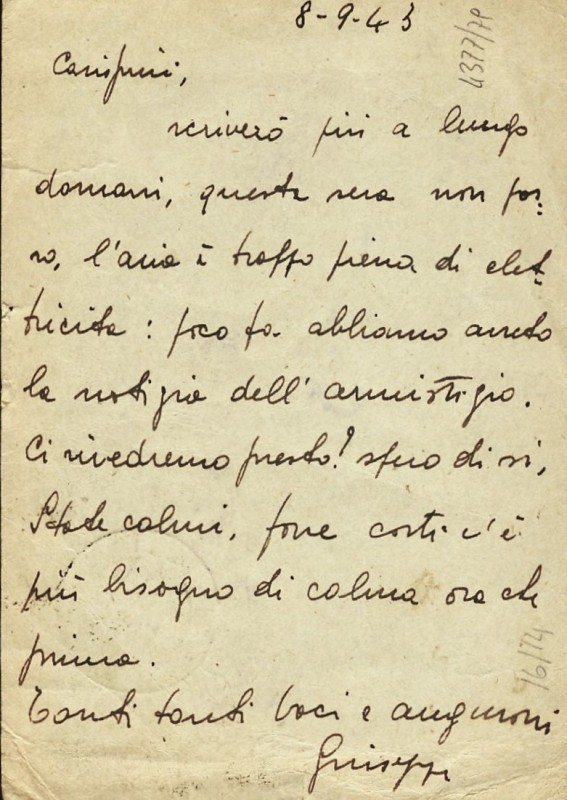 8-9-43
4377/7P
Carissimi,
scriverò più a lungo
domani, questa sera non pos=
so, l'aria è troppo piena di elet=
tricità : poco fa abbiamo avuto
la notizia dell' armistizio.
Ci rivedremo presto? spero di sì,
State calmi, forse costì c'è
più bisogno di calma ora che
prima.
Tanti tanti baci e auguroni
Giuseppe
16/74